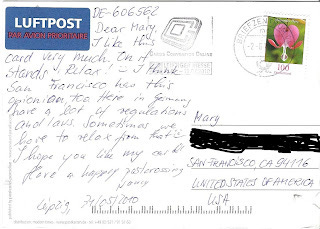 LUFTPOST
PAR AVION PRIORITAIRE
DE-606562
Dear Mary,
I like this
card very much. On it
stands "Relax" - I think
San Francisco has this
opionian, too. Here in Germany
have a lot of regulations
and laws. Sometimes we
have to relax from that's
I hope you like my card!
Have a happy postcrossing
Leipzig, 21/05/2010
BRIEFZEN
100
Mary
SAN FRANCISCO CA 94116
UNITED STATES OF AMERICA
USA